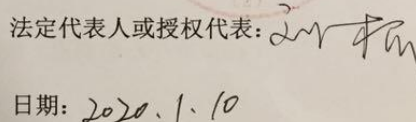 法定代表人或授权代表:
日期: 2020.1.10